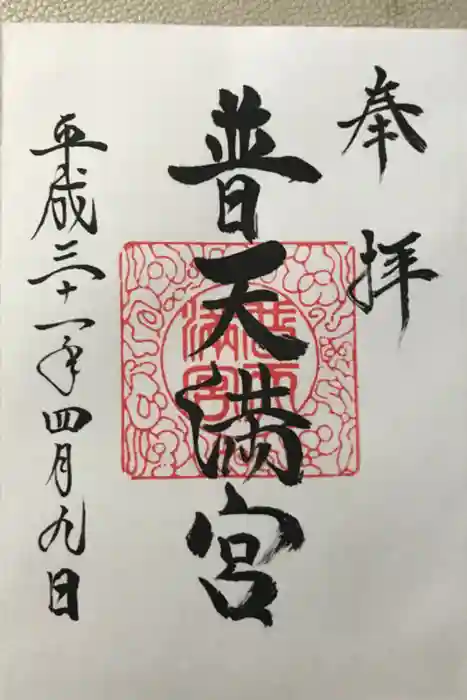 奉拝
普天満宮
平成三十一年四月九日